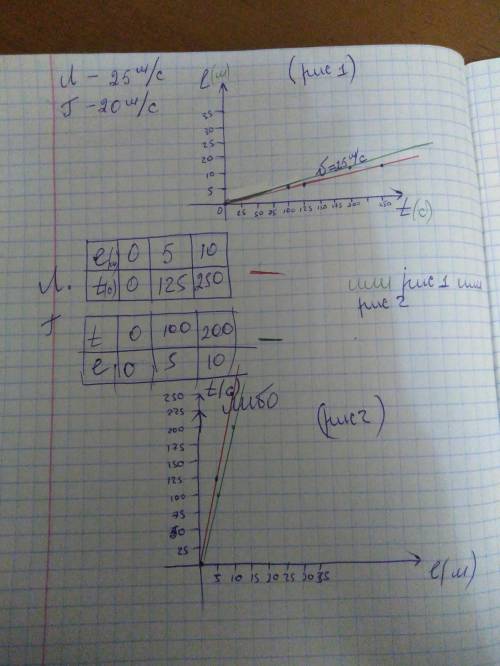 Л – 25 м/с
Г – 20 м/с
l(м)
(рис 1)
35
30
25
20
10
5
0 25 50 75 100 125 150 175 200 250
t(с)
v=25 м/с
Л.
l(м) 0 5 10
t(с) 0 125 250
или рис 1 или
рис 2
Г
t 0 100 200
l 0 5 10
t(с)
либо
(рис 2)
250
225
200
175
150
125
100
75
50
25
5 10 15 20 25 30 35
l(м)